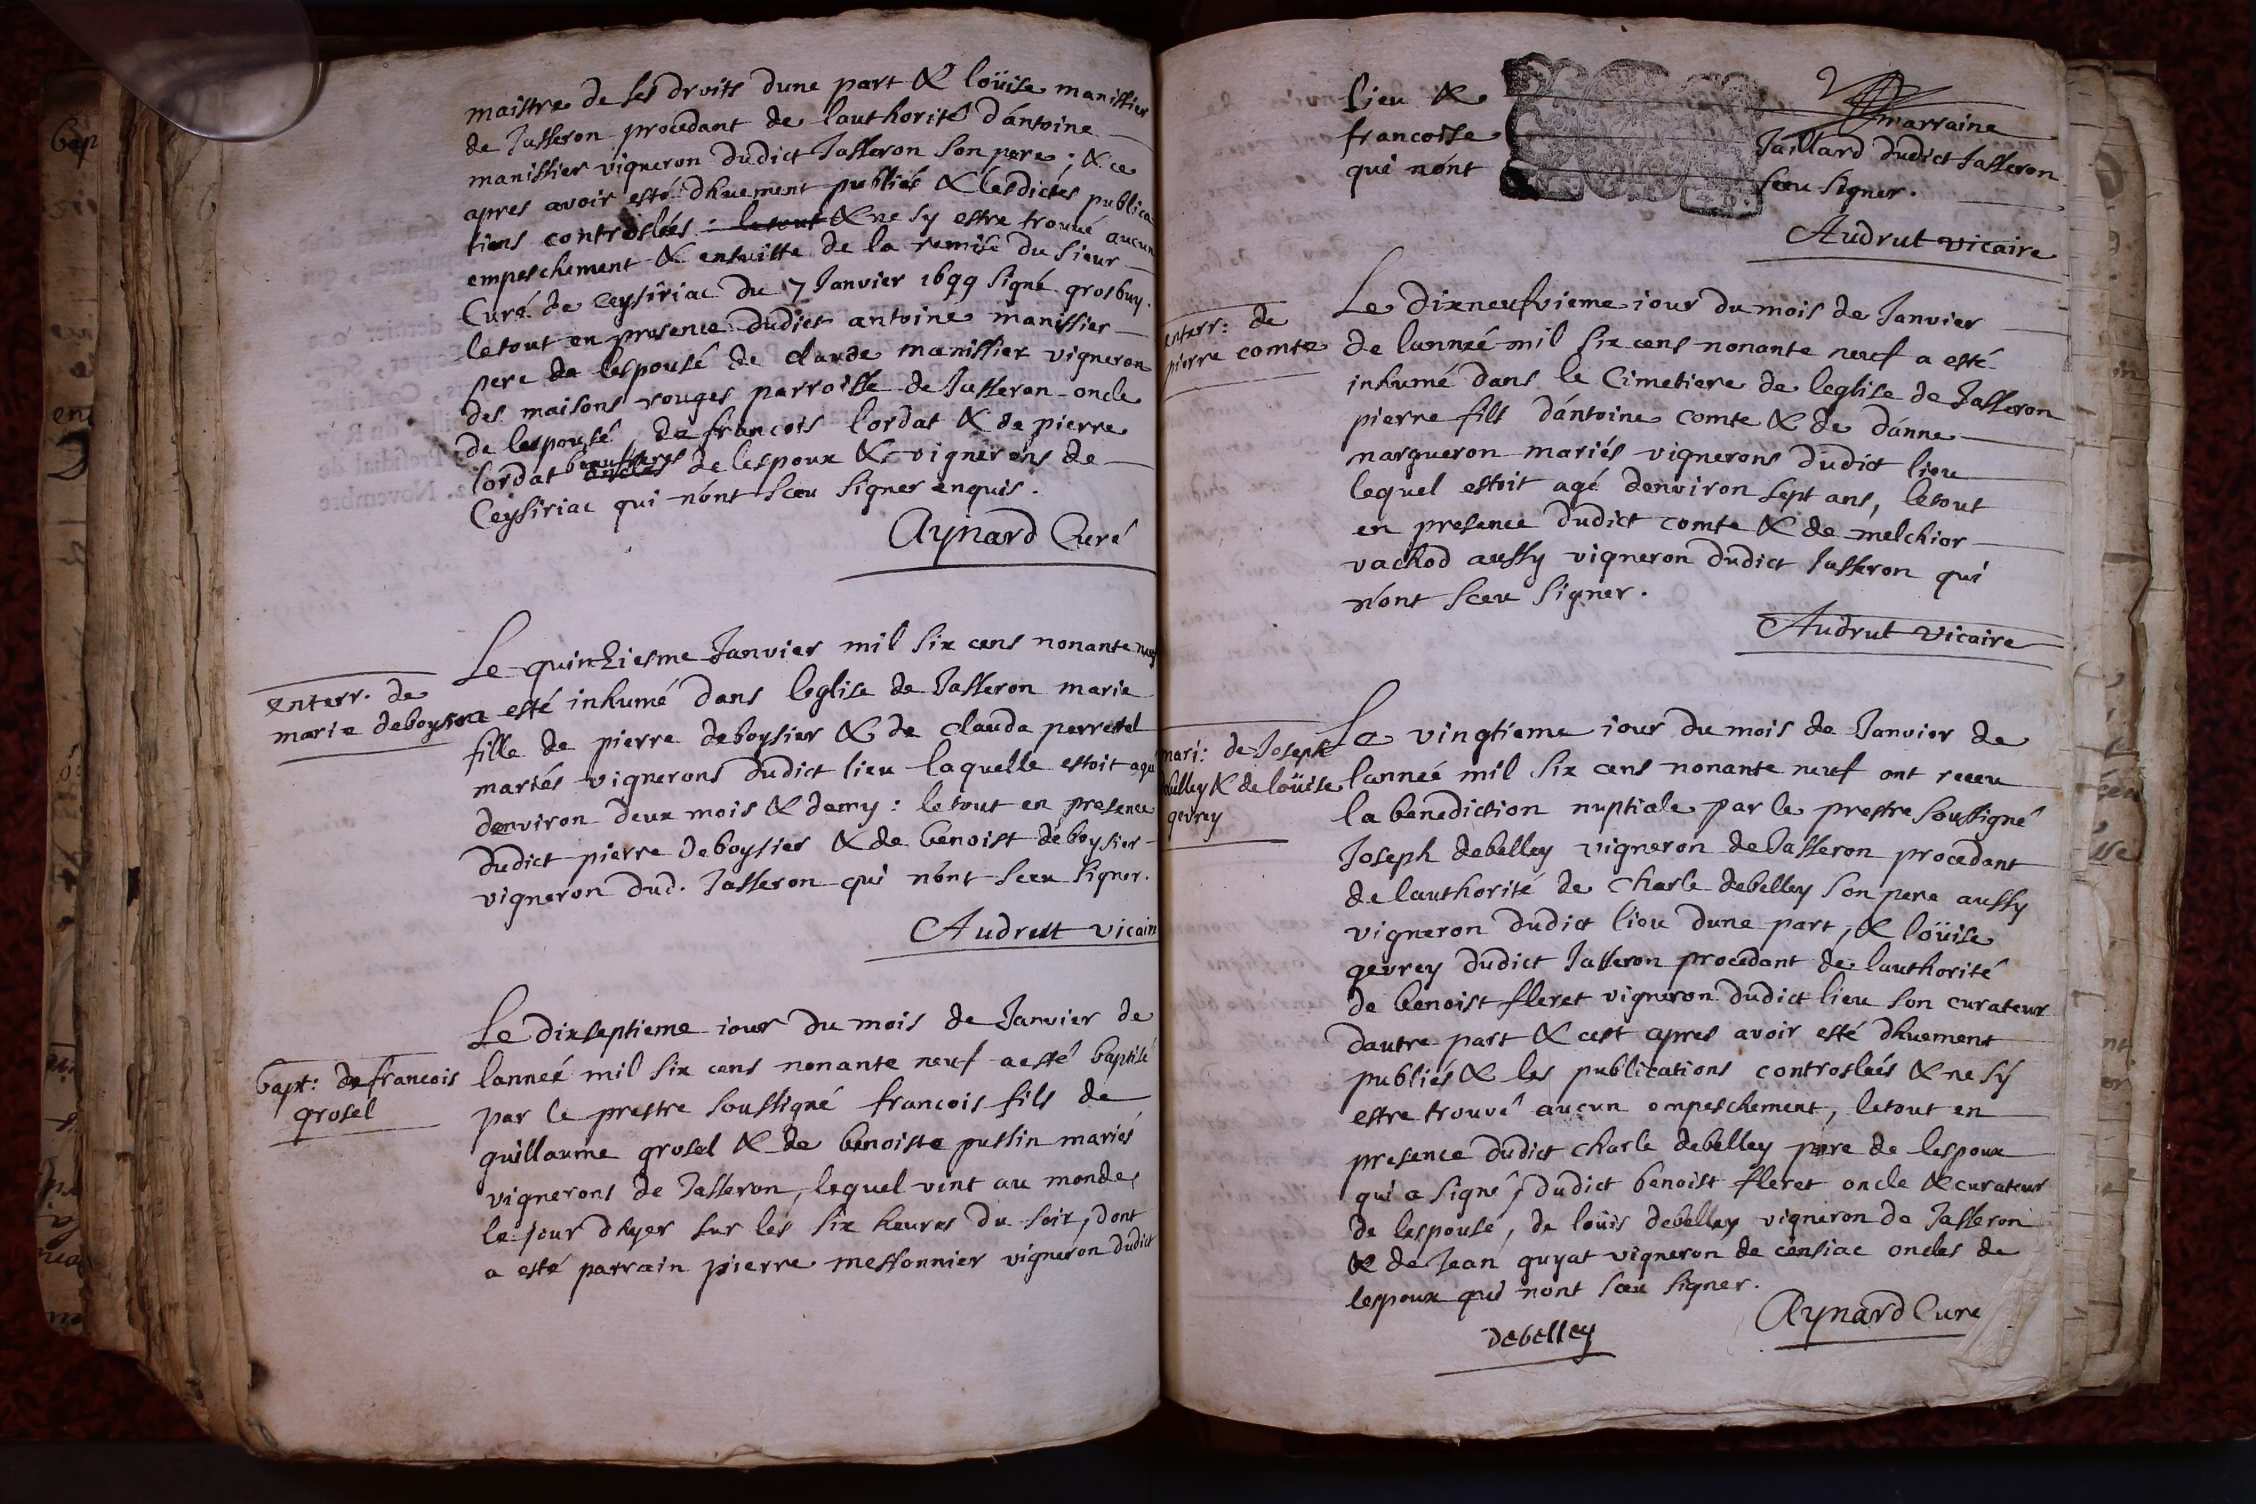 maistre de ses droits dune part & loüise manissier
de Jasseron procedant de lauthorité d'antoine
manissier vigneron dudict Jasseron son pere ; & ce
apres avoir esté dhuement publiés & lesdictes publica
tions controslées : le tout & ne sy estre trouué aucun
empeschement & ensuitte de la remise du sieur
Curé de Ceysiriac du 7 Janvier 1699 signé grosbuy.
le tout en presence dudict antoine manissier
pere de lespousé de claude manissier vigneron
des maisons rouges parroisse de Jasseron oncle
de lespousé de francois lordat & de pierre
lordat beaufreres oncles de lespoux & vignerons de
Ceysiriac qui n'ont sceu signer enquis.
Aynard Curé
enterr. de
marie deboysier
Le quinziesme Janvier mil six cens nonante neuf
a esté inhumé dans leglise de Jasseron marie
fille de pierre deboysier & de clauda perretel
mariés vignerons dudict lieu laquelle estoit agée
denviron deux mois & demy : le tout en presence
dudict pierre deboysier & de benoist deboysier
vigneron dud. Jasseron qui n'ont sceu signer.
Audrut vicaire
bapt: de francois
grosel
Le dixseptieme iour du mois de Janvier de
lanneé mil six cens nonante neuf a esté baptisé
par le prestre soussigné francois fils de
guillaume grosel & de benoiste pussin mariés
vignerons de Jasseron, lequel vint au monde
le jour dhyer sur les six heures du soir, dont
a esté parrain pierre messonnier vigneron dudict
lieu & marraine
francoise Jaillard dudict Jasseron
qui nont sceu signer.
Audrut vicaire
enterr: de
pierre comte
Le dixneufvieme iour du mois de Janvier
de lanneé mil six cens nonante neuf a esté
inhumé dans le Cimetiere de leglise de Jasseron
pierre fils d'antoine comte & de d'anne
nargueron mariés vignerons dudict lieu
lequel estoit agé denviron sept ans, le tout
en presence dudict comte & de melchior
vachod aussy vigneron dudict Jasseron qui
n'ont sceu signer.
Audrut vicaire
mari: de Joseph
debelley & de loüise
gevrey
Le vingtieme iour du mois de Janvier de
lanneé mil six cens nonante neuf ont receu
la benediction nuptiale par le prestre soussigné
Joseph debelley vigneron de Jasseron procedant
de lauthorité de charle debelley son pere aussy
vigneron dudict lieu dune part, & loüise
gevrey dudict Jasseron procedant de lauthorité
de benoist fleret vigneron dudict lieu son curateur
dautre part & cest apres avoir esté dhuement
publiés & les publications controslées & ne sy
estre trouvé aucun empeschement, le tout en
presence dudict charle debelley pere de lespoux
qui a signé, dudict benoist fleret oncle & curateur
de lespouse, de loüis debelley vigneron de Jasseron
& de Jean guyat vigneron de censiac oncles de
lespoux qui nont sceu signer.
Aynard Cure
debelley